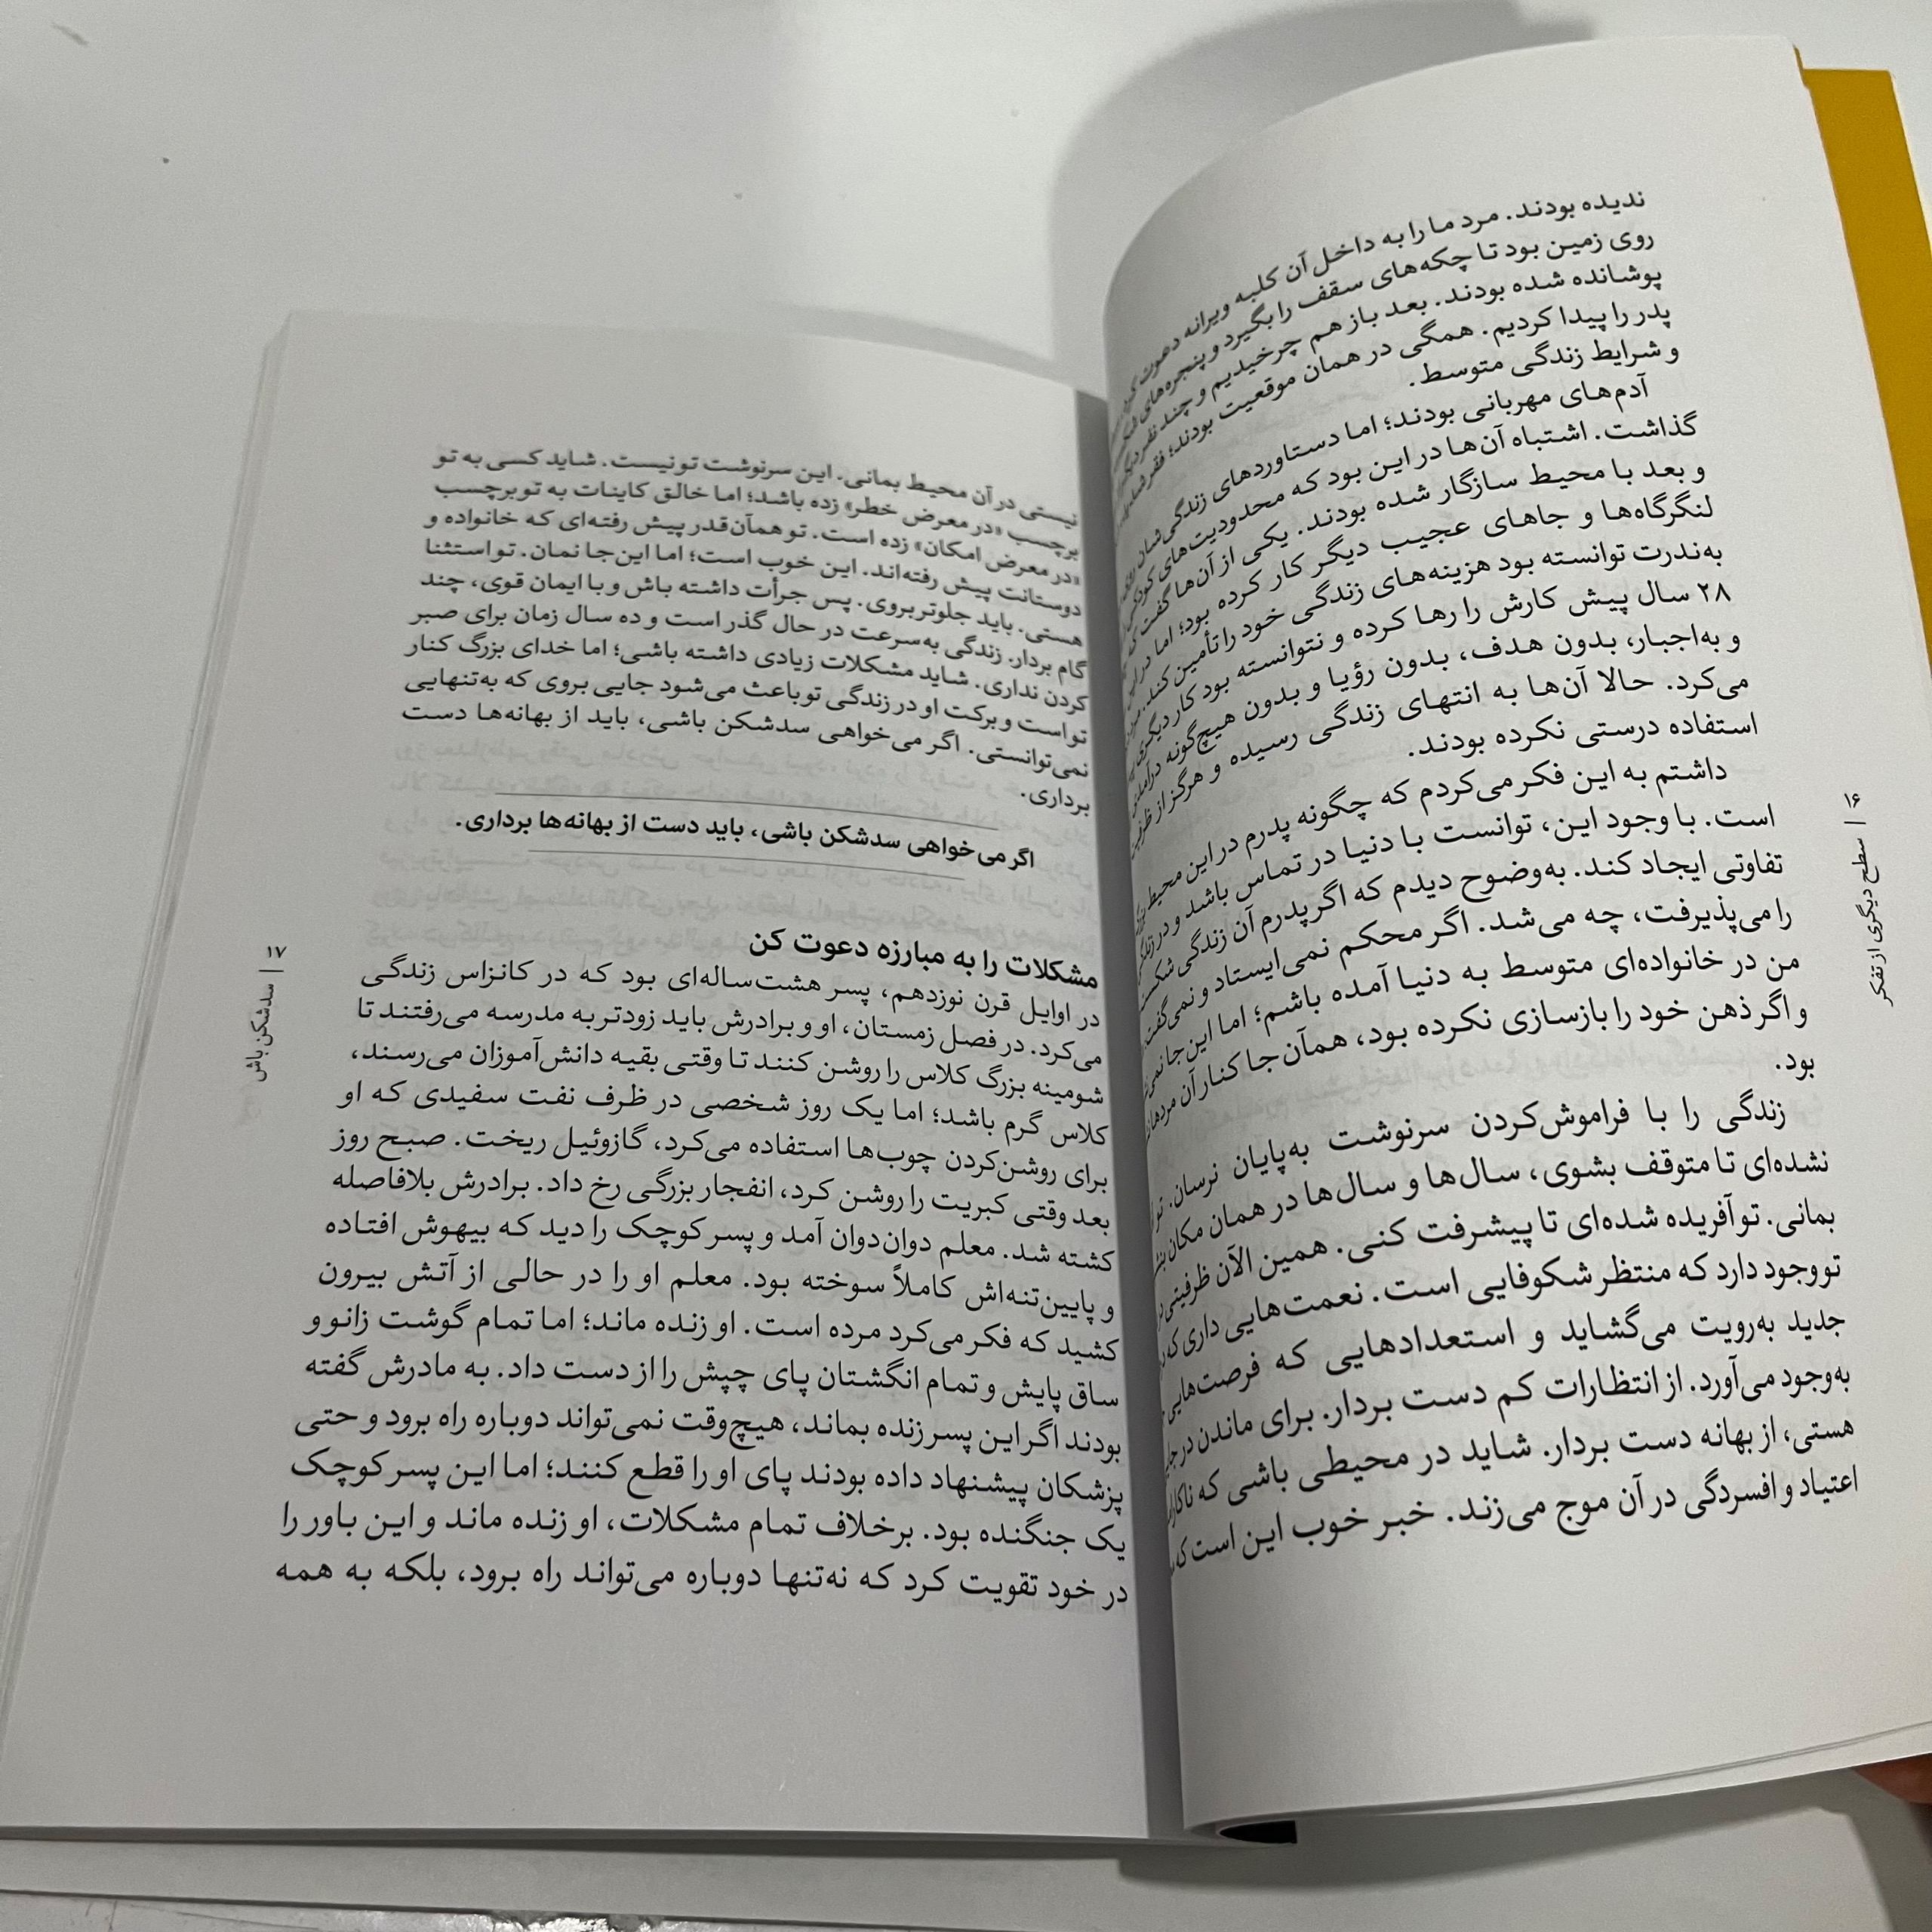 ندیده بودند. مرد ما را به داخل آن کلبه ویرانه دعوت
روی زمین بود تا چکه‌های سقف را بگیرد و پنجره‌های
پوشانده شده بودند. بعد باز هم چرخیدیم و چند نفر
پدر را پیدا کردیم. همگی در همان موقعیت بودند؛ فقر
و شرایط زندگی متوسط.
آدم‌های مهربانی بودند؛ اما دستاوردهای زندگی‌شان
گذاشت. اشتباه آن‌ها در این بود که محدودیت‌های کودکی
و بعد با محیط سازگار شده بودند. یکی از آن‌ها گفت که
لنگرگاه‌ها و جاهای عجیب دیگر کار کرده بود؛ اما در
به‌ندرت توانسته بود هزینه‌های زندگی خود را تأمین کند.
۲۸ سال پیش کارش را رها کرده و نتوانسته بود کار دیگری
و به‌اجبار، بدون هدف، بدون رؤیا و بدون هیچ‌گونه درآمدی
می‌کرد. حالا آن‌ها به انتهای زندگی رسیده و هرگز از
استفاده درستی نکرده بودند.
داشتم به این فکر می‌کردم که چگونه پدرم در این محیط
است. با وجود این، توانست با دنیا در تماس باشد و در
تفاوتی ایجاد کند. به‌وضوح دیدم که اگر پدرم آن زندگی شکست
را می‌پذیرفت، چه می‌شد. اگر محکم نمی‌ایستاد و نمی‌گفت:
من در خانواده‌ای متوسط به دنیا آمده باشم؛ اما این‌جا
و اگر ذهن خود را بازسازی نکرده بود، همآن‌جا کنار آن مردها
بود.
زندگی را با فراموش‌کردن سرنوشت به‌پایان نرسان. تو
نشده‌ای تا متوقف بشوی، سال‌ها و سال‌ها در همان مکان
بمانی. تو آفریده شده‌ای تا پیشرفت کنی. همین الآن ظرفیتی
تو وجود دارد که منتظر شکوفایی است. نعمت‌هایی داری که
جدید به‌رویت می‌گشاید و استعدادهایی که فرصت‌هایی
به‌وجود می‌آورد. از انتظارات کم دست بردار. برای ماندن در
هستی، از بهانه دست بردار. شاید در محیطی باشی که
اعتیاد و افسردگی در آن موج می‌زند. خبر خوب این است که
۱۶ | سطح دیگری از تفکر
نیستی در آن محیط بمانی. این سرنوشت تو نیست. شاید کسی به تو
برچسب «در معرض خطر» زده باشد؛ اما خالق کاینات به تو برچسب
«در معرض امکان» زده است. تو همآن‌قدر پیش رفته‌ای که خانواده و
دوستانت پیش رفته‌اند. این خوب است؛ اما این‌جا نمان. تو استثنا
هستی. باید جلوتر بروی. پس جرأت داشته باش و با ایمان قوی، چند
گام بردار. زندگی به‌سرعت در حال گذر است و ده سال زمان برای صبر
کردن نداری. شاید مشکلات زیادی داشته باشی؛ اما خدای بزرگ کنار
تو است و برکت او در زندگی تو باعث می‌شود جایی بروی که به‌تنهایی
نمی‌توانستی. اگر می‌خواهی سدشکن باشی، باید از بهانه‌ها دست
برداری.
اگر می‌خواهی سدشکن باشی، باید دست از بهانه‌ها برداری.
مشکلات را به مبارزه دعوت کن
در اوایل قرن نوزدهم، پسر هشت‌ساله‌ای بود که در کانزاس زندگی
می‌کرد. در فصل زمستان، او و برادرش باید زودتر به مدرسه می‌رفتند تا
شومینه بزرگ کلاس را روشن کنند تا وقتی بقیه دانش‌آموزان می‌رسند،
کلاس گرم باشد؛ اما یک روز شخصی در ظرف نفت سفیدی که او
برای روشن‌کردن چوب‌ها استفاده می‌کرد، گازوئیل ریخت. صبح روز
بعد وقتی کبریت را روشن کرد، انفجار بزرگی رخ داد. برادرش بلافاصله
کشته شد. معلم دوان‌دوان آمد و پسر کوچک را دید که بیهوش افتاده
و پایین‌تنه‌اش کاملاً سوخته بود. معلم او را در حالی از آتش بیرون
کشید که فکر می‌کرد مرده است. او زنده ماند؛ اما تمام گوشت زانو و
ساق پایش و تمام انگشتان پای چپش را از دست داد. به مادرش گفته
بودند اگر این پسر زنده بماند، هیچ‌وقت نمی‌تواند دوباره راه برود و حتی
پزشکان پیشنهاد داده بودند پای او را قطع کنند؛ اما این پسر کوچک
یک جنگنده بود. برخلاف تمام مشکلات، او زنده ماند و این باور را
در خود تقویت کرد که نه‌تنها دوباره می‌تواند راه برود، بلکه به همه
۱۷ | سدشکن باش